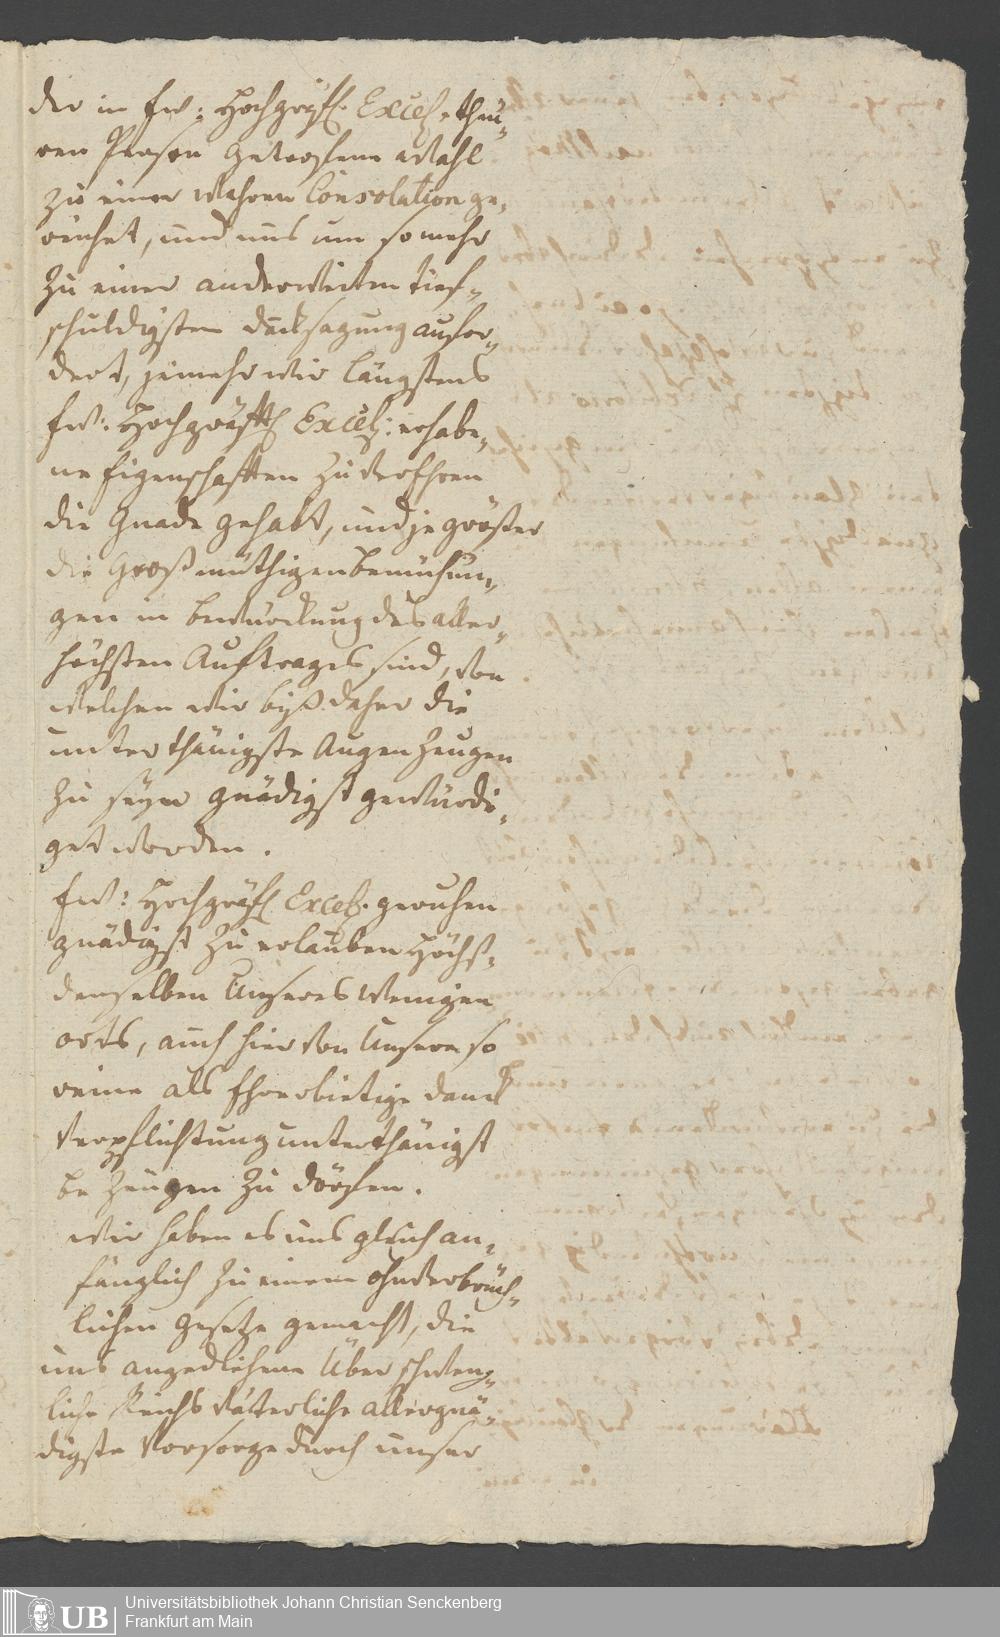 der in Ew: Hochgräfl. Excel. theu-
ren Person getroffene Wahl
zu einer wahren Consolation ge-
reichet, und uns um somehr
zu einer anderweiten tief-
schuldigsten Dancksagung aufor-
dert, jemehr wir längstens
Ew: Hochgräffl. Excel: erhabe-
ne Eigenschafften zu verEhren
die Gnade gehabt, und je größer
die Großmüthigen Bemühun-
gen in Bewürckung des aller-
höchsten Auftrages sind, von
welchen wir biß daher die
unterthänigste Augen Zeugen
zu seyn gnädigst gewürdi-
get worden.
Ew: Hochgräfl. Excel. geruhen
gnädigst zu erlauben Höchst-
denselben Unseres wenigen
orts, auch hier von Unsere so
reine als Ehrerbietige Danck
Verpflichtung unterthänigst
be Zeugen zu dörfen.
Wir haben es uns gleich an-
fänglich zu einem ohnverbrüch-
lichen Gesetze gemacht, die
uns angediehene Überschweng-
liche Reichs Vätterliche allergnä-
digste Vorsorge durch unser
Universitätsbibliothek Johann Christian Senckenberg
Frankfurt am Main
UB